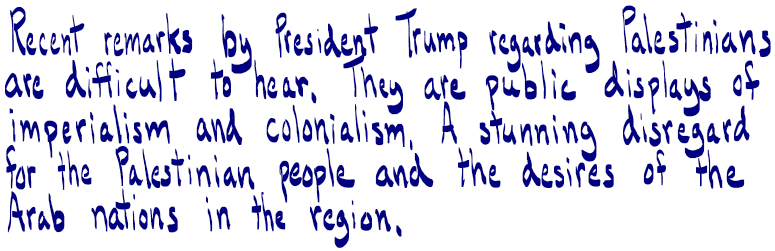 Recent remarks by President Trump regarding Palestinians
are difficult to hear. They are public displays of
imperialism and colonialism. A stunning disregard
for the Palestinian people and the desires of the
Arab nations in the region.